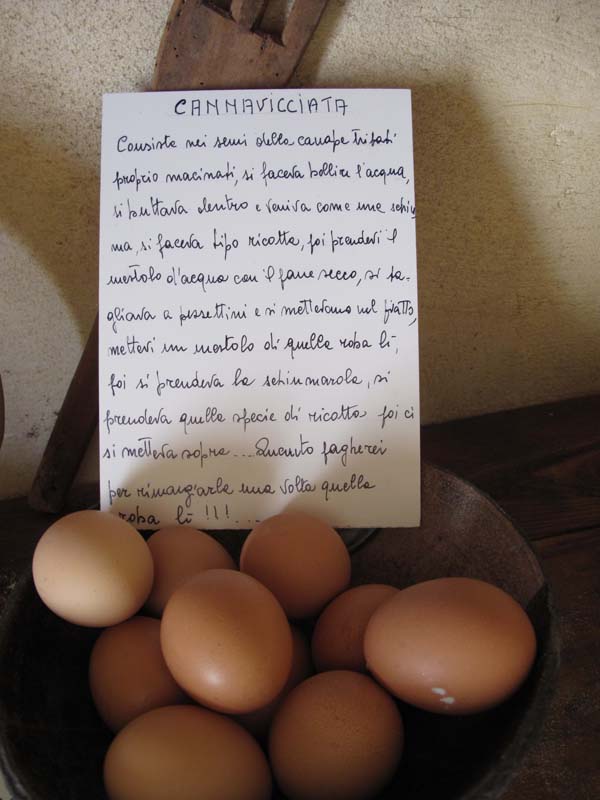 CANNAVICCIATA
Consiste nei semi della canape tritati
proprio macinati, si faceva bollire l'acqua,
si buttava dentro e veniva come une schiu
ma, si faceva tipo ricotta, poi prendevi il
mestolo d'acqua con il pane secco, si ta-
gliava a pezzettini e si mettevano nel piatto,
mettevi un mestolo di quella roba lì,
poi si prendeva la schiumarola, si
prendeva quella specie di ricotta poi ci
si metteva sopra .... Quanto pagherei
per rimangiarla una volta quella
roba lì !!!...